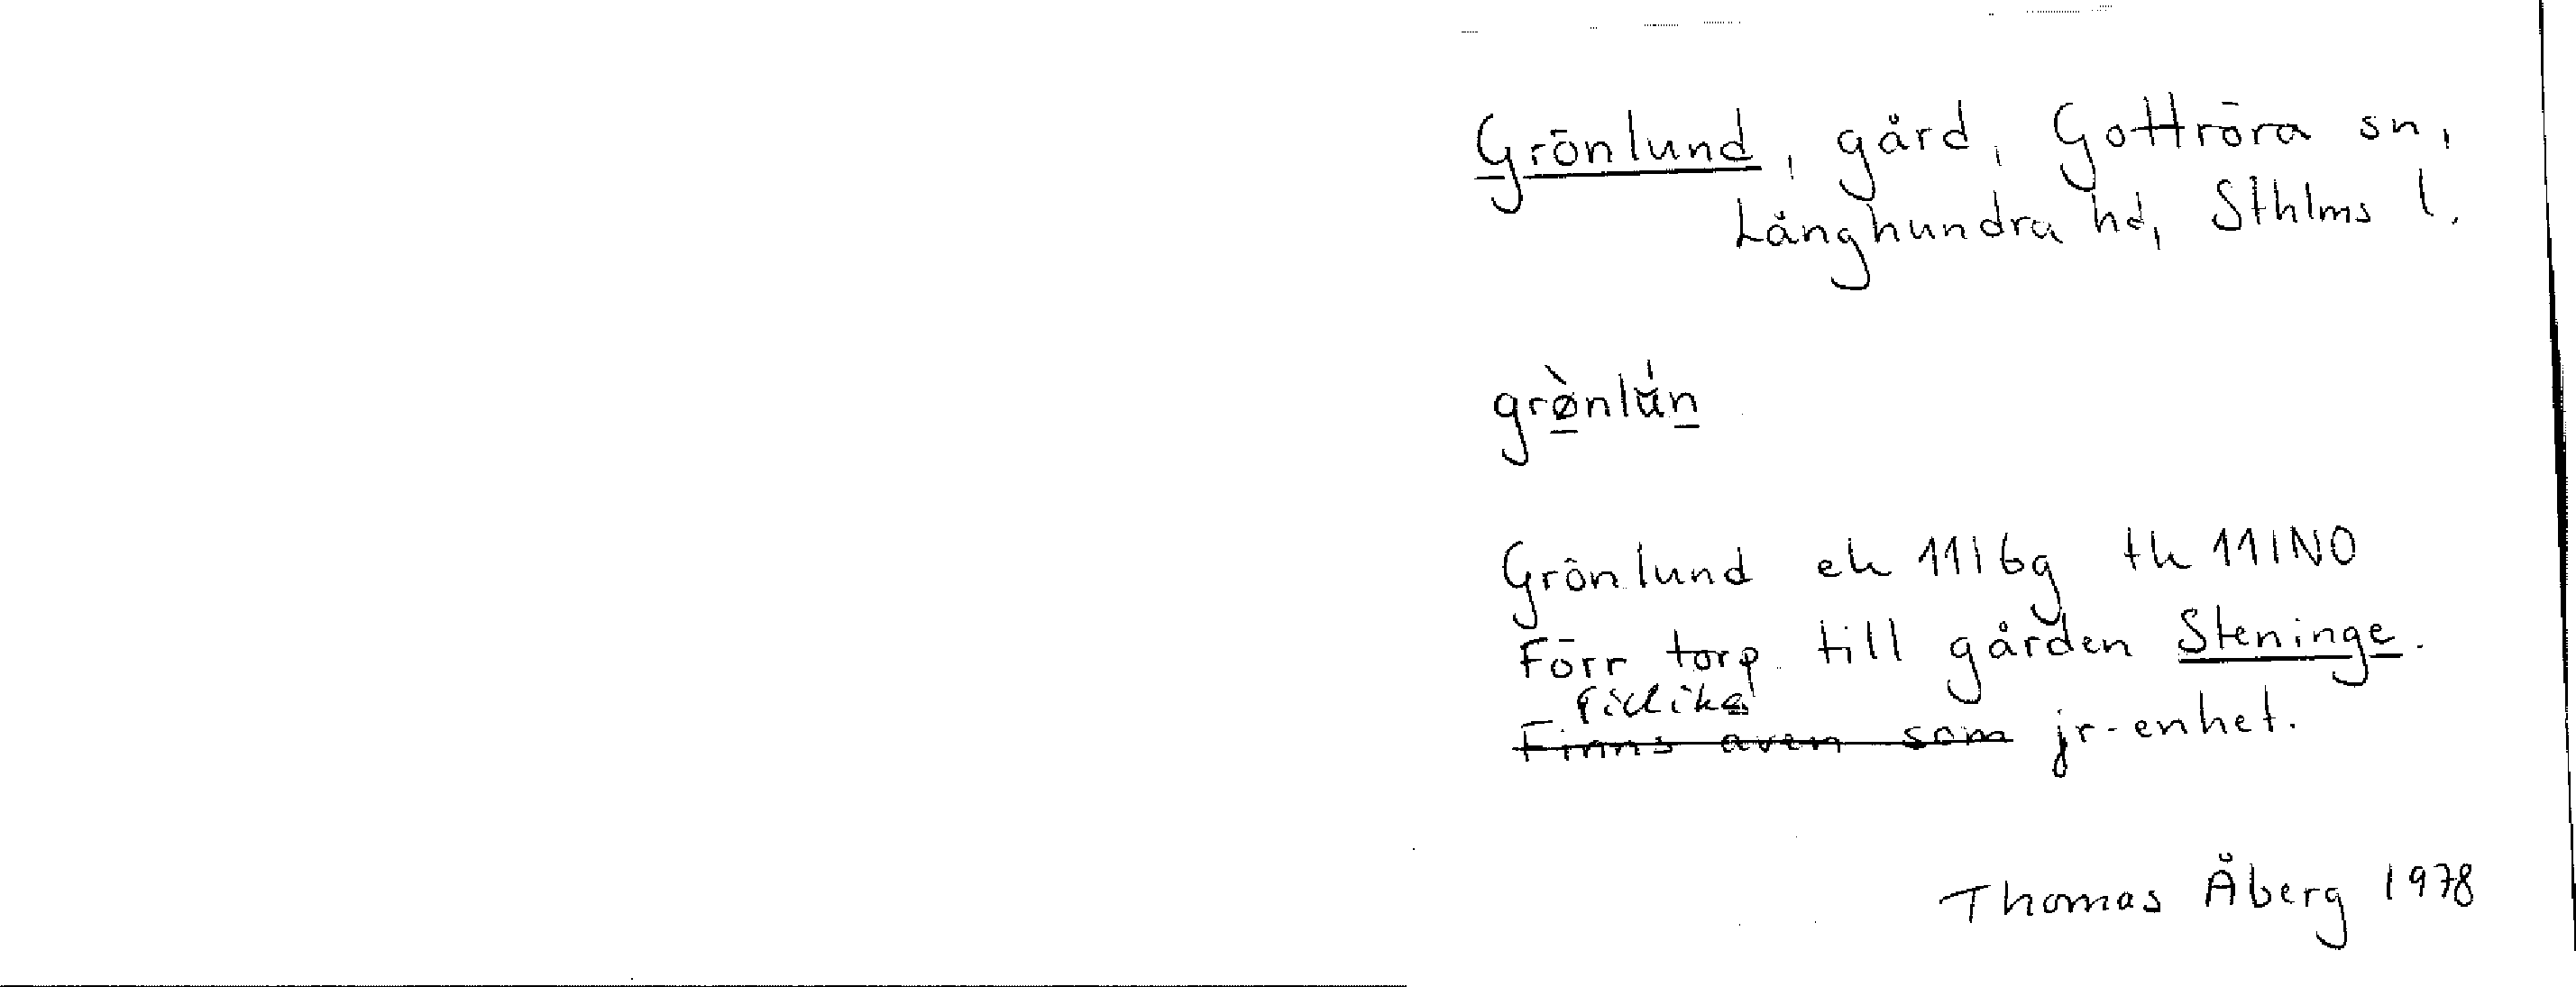 Grönlund, gård, Gottröra sn,
Långhundra hd, Sthlms l.
grø̀nlŭ́n
Grönlund ek 11I6g tk 11INO
Förr torp till gården Steninge.
Tillika
Finns även som jr-enhet.
Thomas Åberg 1978